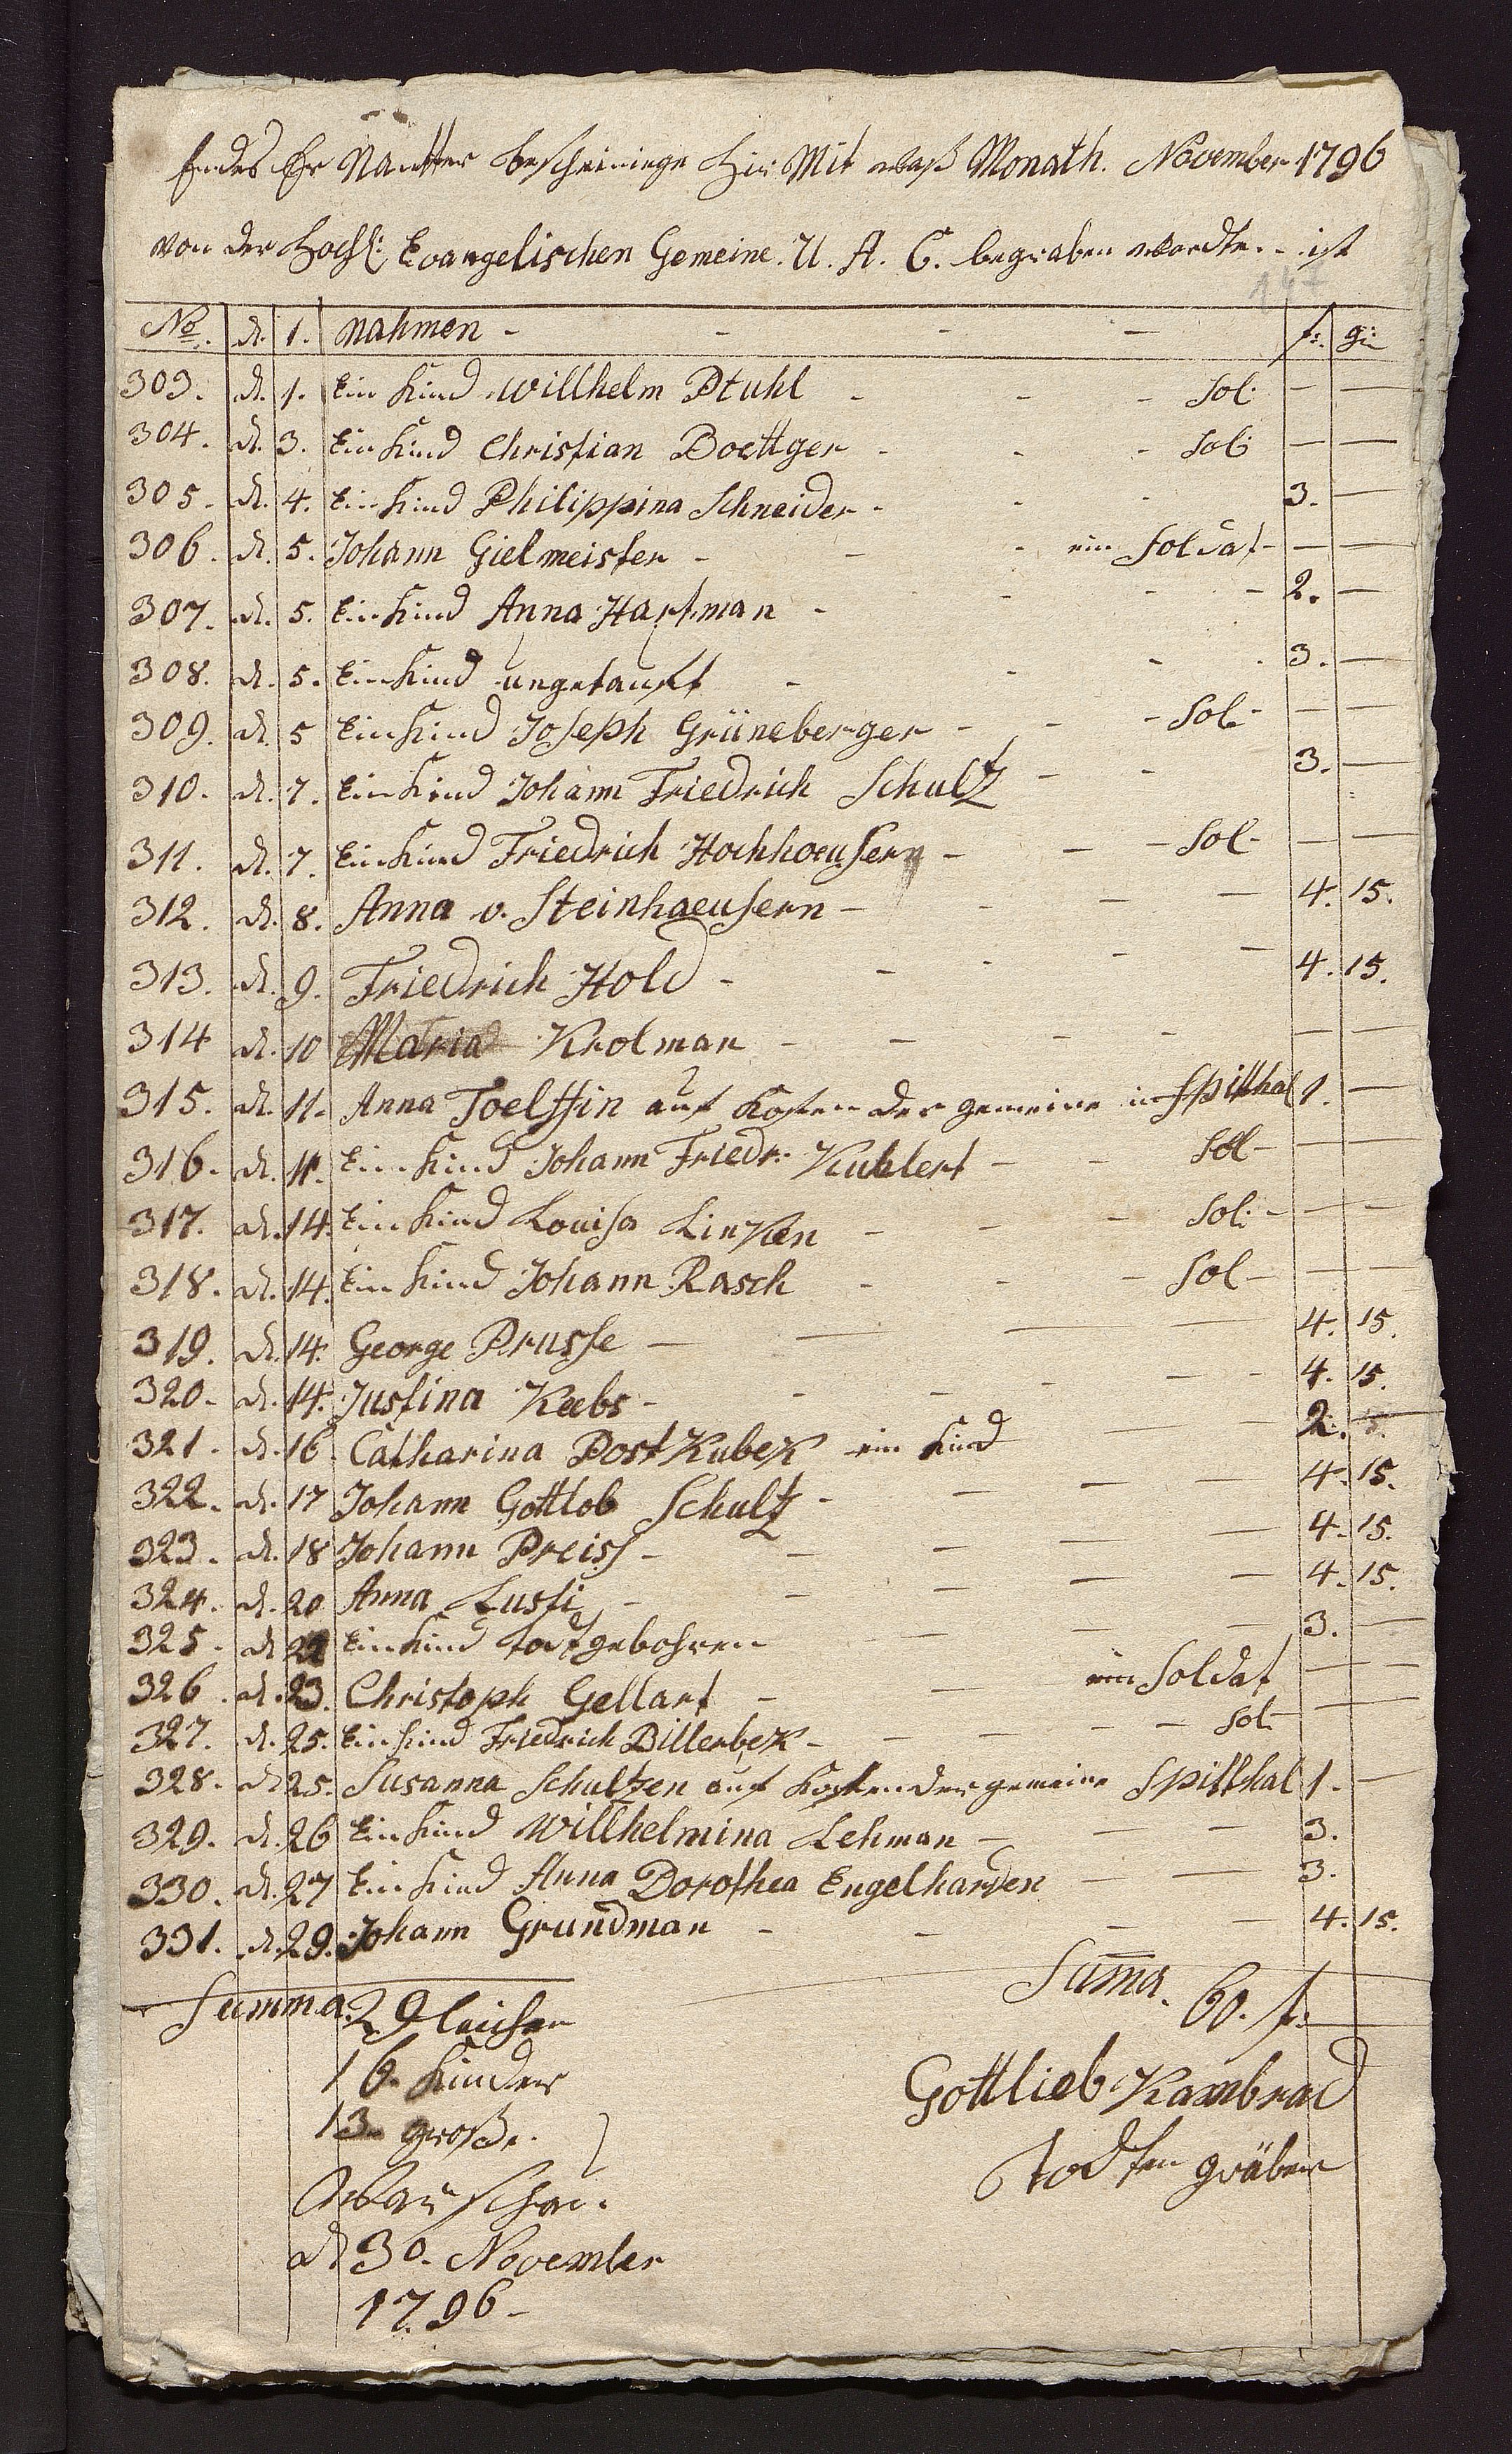 Endes Er Nantter bescheinige hir Mit waß Monath. November 1796
von der Hochl: Evangelischen Gemeine. U. A. C. begraben wordten ist
No. d. 1. Nahmen - - - - f: gr:
303. d. 1. Ein Kind Willhelm Ptuhl - - - Sol: — —
304. d. 3. Ein Kind Christian Boettger - - - Sol: — —
305. d. 4. Ein Kind Philippina Schneider - - - 3. —
306. d. 5. Johann Gielmeister - - - ein Soldat - — —
307. d. 5. Ein Kind Anna Hartman - - - - 2. —
308. d. 5. Ein Kind ungetauft - - - - 3. —
309. d. 5 Ein Kind Joseph Grüneberger - - - Sol - — —
310. d. 7. Ein Kind Johann Friedrich Schultz - - 3. —
311. d. 7. Ein Kind Friedrich Hochhoeusern - - - Sol - — —
312. d. 8. Anna v. Steinhaeusern - - - - 4. 15.
313. d. 9. Friedrich Hold - - - - - 4. 15.
314 d. 10 Maria Krolman - - - - — —
315. d. 11. Anna Toelffin auf Kosten der gemeine in Spitthal 1. —
316. d. 11. Ein Kind Johann Friedr: Kuhlert - - Sol - — —
317. d. 14. Ein Kind Louisa Linken - - - Sol: - — —
318. d. 14. Ein Kind Johann Rasch - - - Sol - — —
319. d. 14. George Prusse — — — — 4. 15.
320. d. 14. Justina Keebs - - - - - - 4. 15.
321. d. 16. Catharina Postkubek ein Kind — — 2. —
322. d. 17 Johann Gottlob Schultz - — — — 4. 15.
323. d. 18 Johann Preiss - — — — — 4. 15.
324. d. 20 Anna Lusti - — — — — 4. 15.
325. d. 22 Ein Kind todtgebohren — — — — 3. —
326. d. 23. Christoph Gellart - — ein Soldat — —
327. d. 25. Ein Kind Friedrich Billerbek - — — - - Sol - — —
328. d. 25. Susanna Schultzen auf Kosten der gemeine Spitthal 1. —
329. d. 26 Ein Kind Willhelmina Lehman — — — 3.
330. d. 27 Ein Kind Anna Dorothea Engelharden — — 3.
331. d. 29. Johann Grundman - — — — 4. 15.
Summa. 29 leichen
Suma. 60. f:
16. Kinder
13. große.
Gottlieb Kambrad
Todten gräber
Warschau.
d 30. November
1796 -